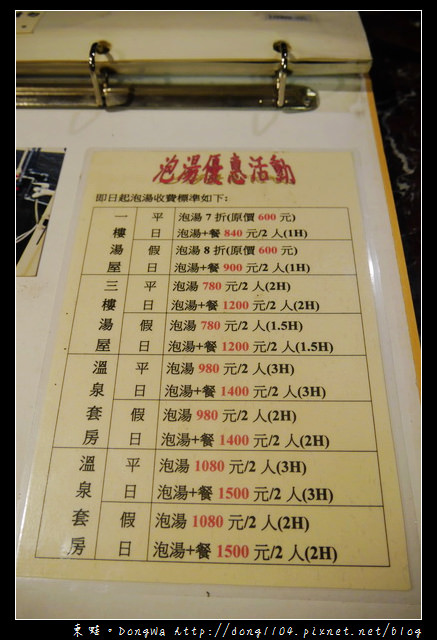 泡湯優惠活動
即日起泡湯收費標準如下:
一樓湯屋
平日
泡湯 7 折(原價 600 元)
泡湯+餐 840 元/2 人(1H)
假日
泡湯 8 折(原價 600 元)
泡湯+餐 900 元/2 人(1H)
三樓湯屋
平日
泡湯 780 元/2 人(2H)
泡湯+餐 1200 元/2 人(2H)
假日
泡湯 780 元/2 人(1.5H)
泡湯+餐 1200 元/2 人(1.5H)
溫泉套房
平日
泡湯 980 元/2 人(3H)
泡湯+餐 1400 元/2 人(3H)
假日
泡湯 980 元/2 人(2H)
泡湯+餐 1400 元/2 人(2H)
溫泉套房
平日
泡湯 1080 元/2 人(3H)
泡湯+餐 1500 元/2 人(3H)
假日
泡湯 1080 元/2 人(2H)
泡湯+餐 1500 元/2 人(2H)
東蛙。DongWa http://dong1104.pixnet.net/blog